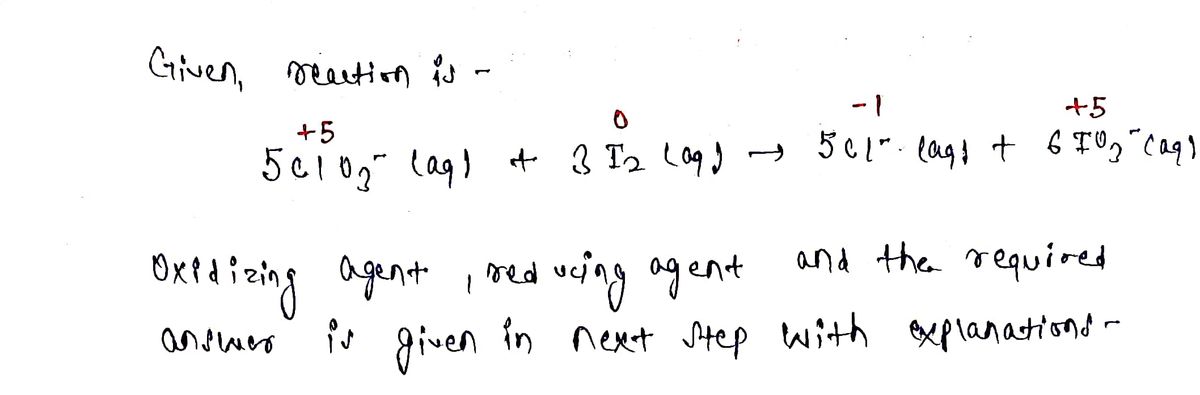 Given, reaction is -
+5 0 -1 +5
5ClO3⁻ (aq) + 3 I2 (aq) → 5Cl⁻ (aq) + 6 IO3⁻ (aq)
Oxidizing agent, reducing agent and the required
answer is given in next step with explanations -